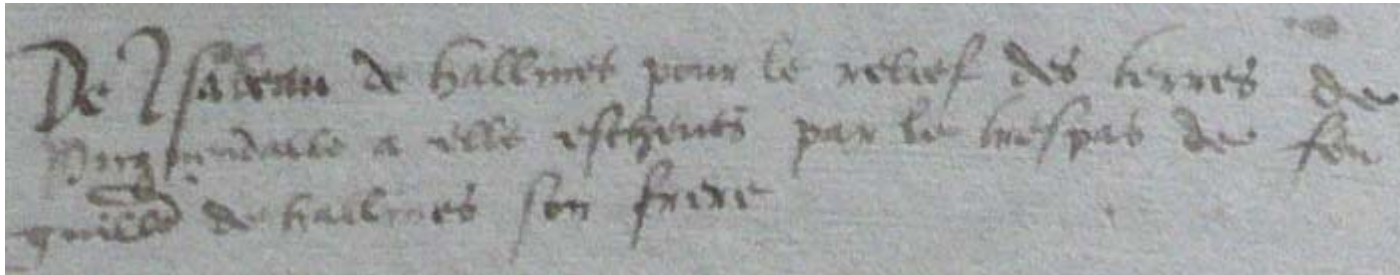 De Isabeau de hallines pour le relief des terres de
a elle escheues par le trespas de feu
de hallines son frere